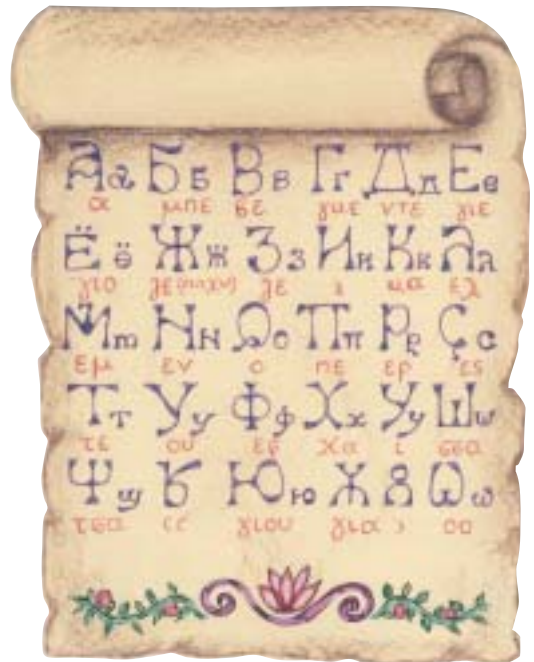 Аа Бб Вв Гг Дд Ее
α μπε βε γιε ντε γιε
Ёё Жж Зз Ии Кк Лл
γιο ζε ι κα ελ
Мm Нн Оо Пп Рр Çс
εμ εν ο πε ερ ες
Тт Уу Фф Хх Уу Шш
τε ου εφ χα ι σσα
Ψ Ѣ Юю Ж 8 Ѡѡ
τσα γιου για οο